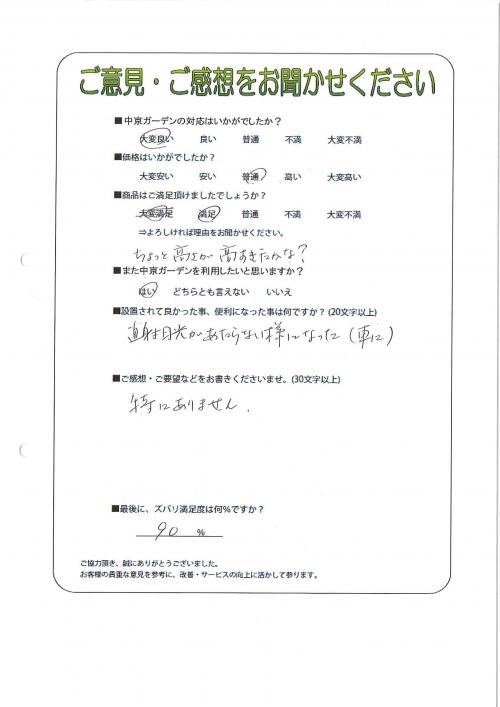 ご意見・ご感想をお聞かせください
■中京ガーデンの対応はいかがでしたか？
大変良い 良い 普通 不満 大変不満
■価格はいかがでしたか？
大変安い 安い 普通 高い 大変高い
■商品はご満足頂けましたでしょうか？
大変満足 満足 普通 不満 大変不満
⇒よろしければ理由をお聞かせください。
ちょっと高さが高すぎたかな？
■また中京ガーデンを利用したいと思いますか？
はい どちらとも言えない いいえ
■設置されて良かった事、便利になった事は何ですか？(20文字以上)
直射日光があたらない様になった（車に）
■ご感想・ご要望などをお書きくださいませ。(30文字以上)
特にありません.
■最後に、ズバリ満足度は何％ですか？
90 %
ご協力頂き、誠にありがとうございました。
お客様の貴重な意見を参考に、改善・サービスの向上に活かして参ります。